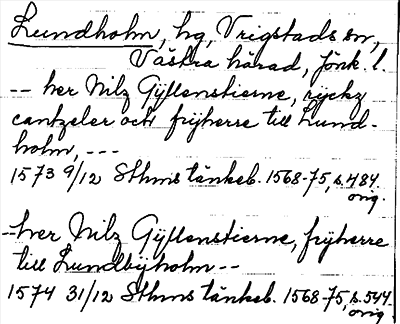 Lundholm, hg, Vrigstads sn,
Västra härad, Jönk. l.
-- her Nilz Gÿllenstierne, rijckz
cantzeler och frijherre till Lund-
holm, ---
1573 9/12 Sthms tänkeb. 1568-75, s. 484.
orig.
-- her Nilz Gÿllenstierne, frijherre
till Lundbÿholm --
1574 31/12 Sthms tänkeb. 1568-75, s. 544.
orig.